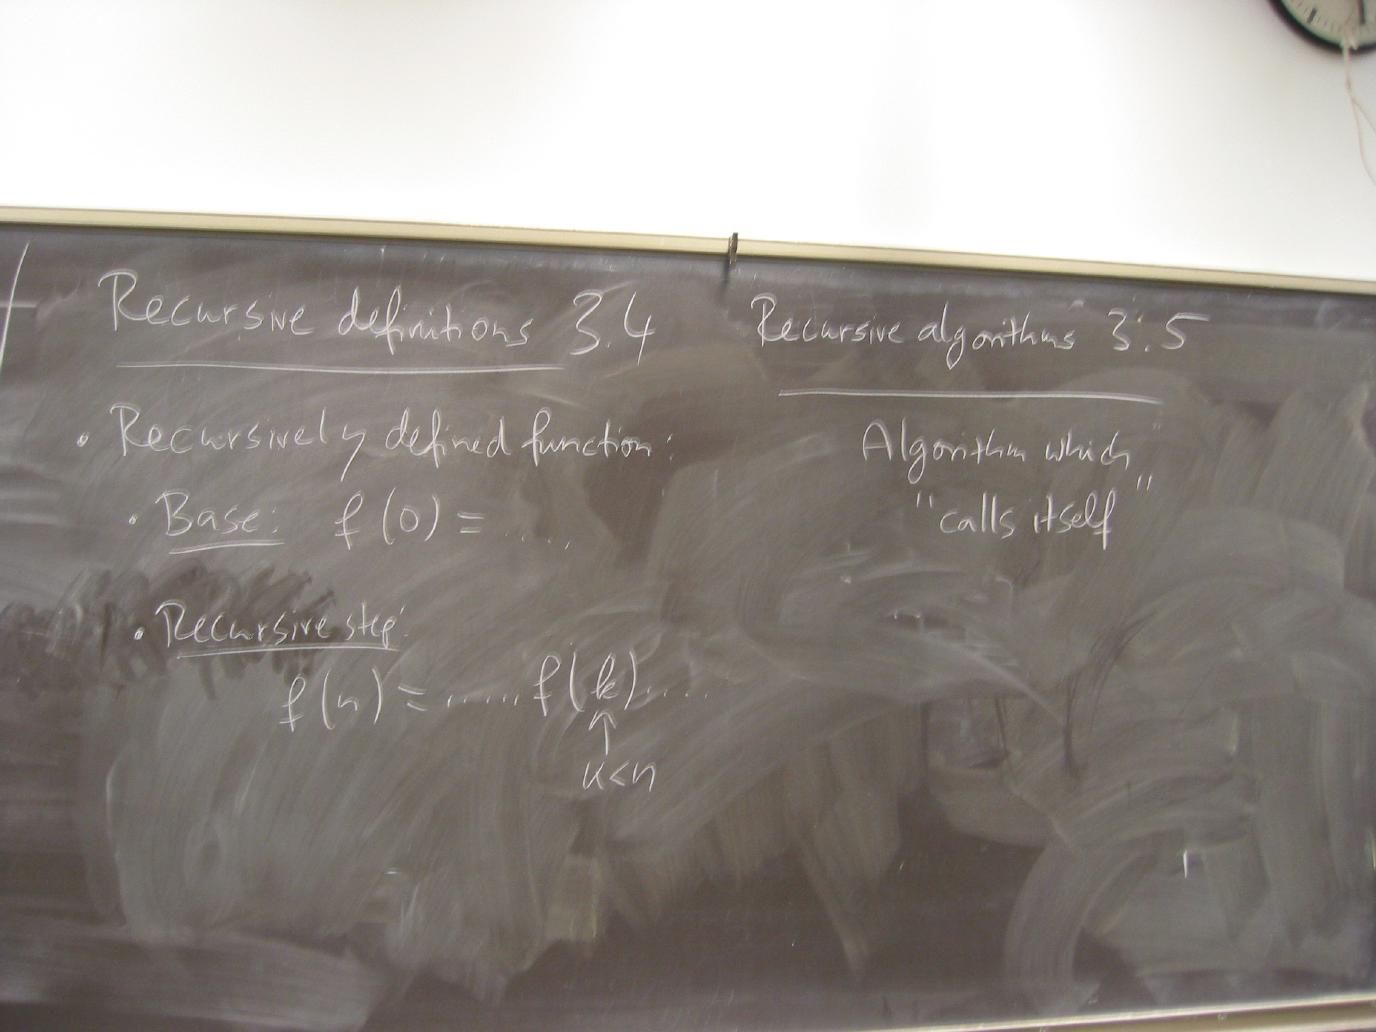 Recursive definitions 3.4
• Recursively defined function:
• Base: f(0) = .....
• Recursive step:
f(n) = ..... f(k) ....
↑
k<n
Recursive algorithms 3.5
Algorithm which
"calls itself"